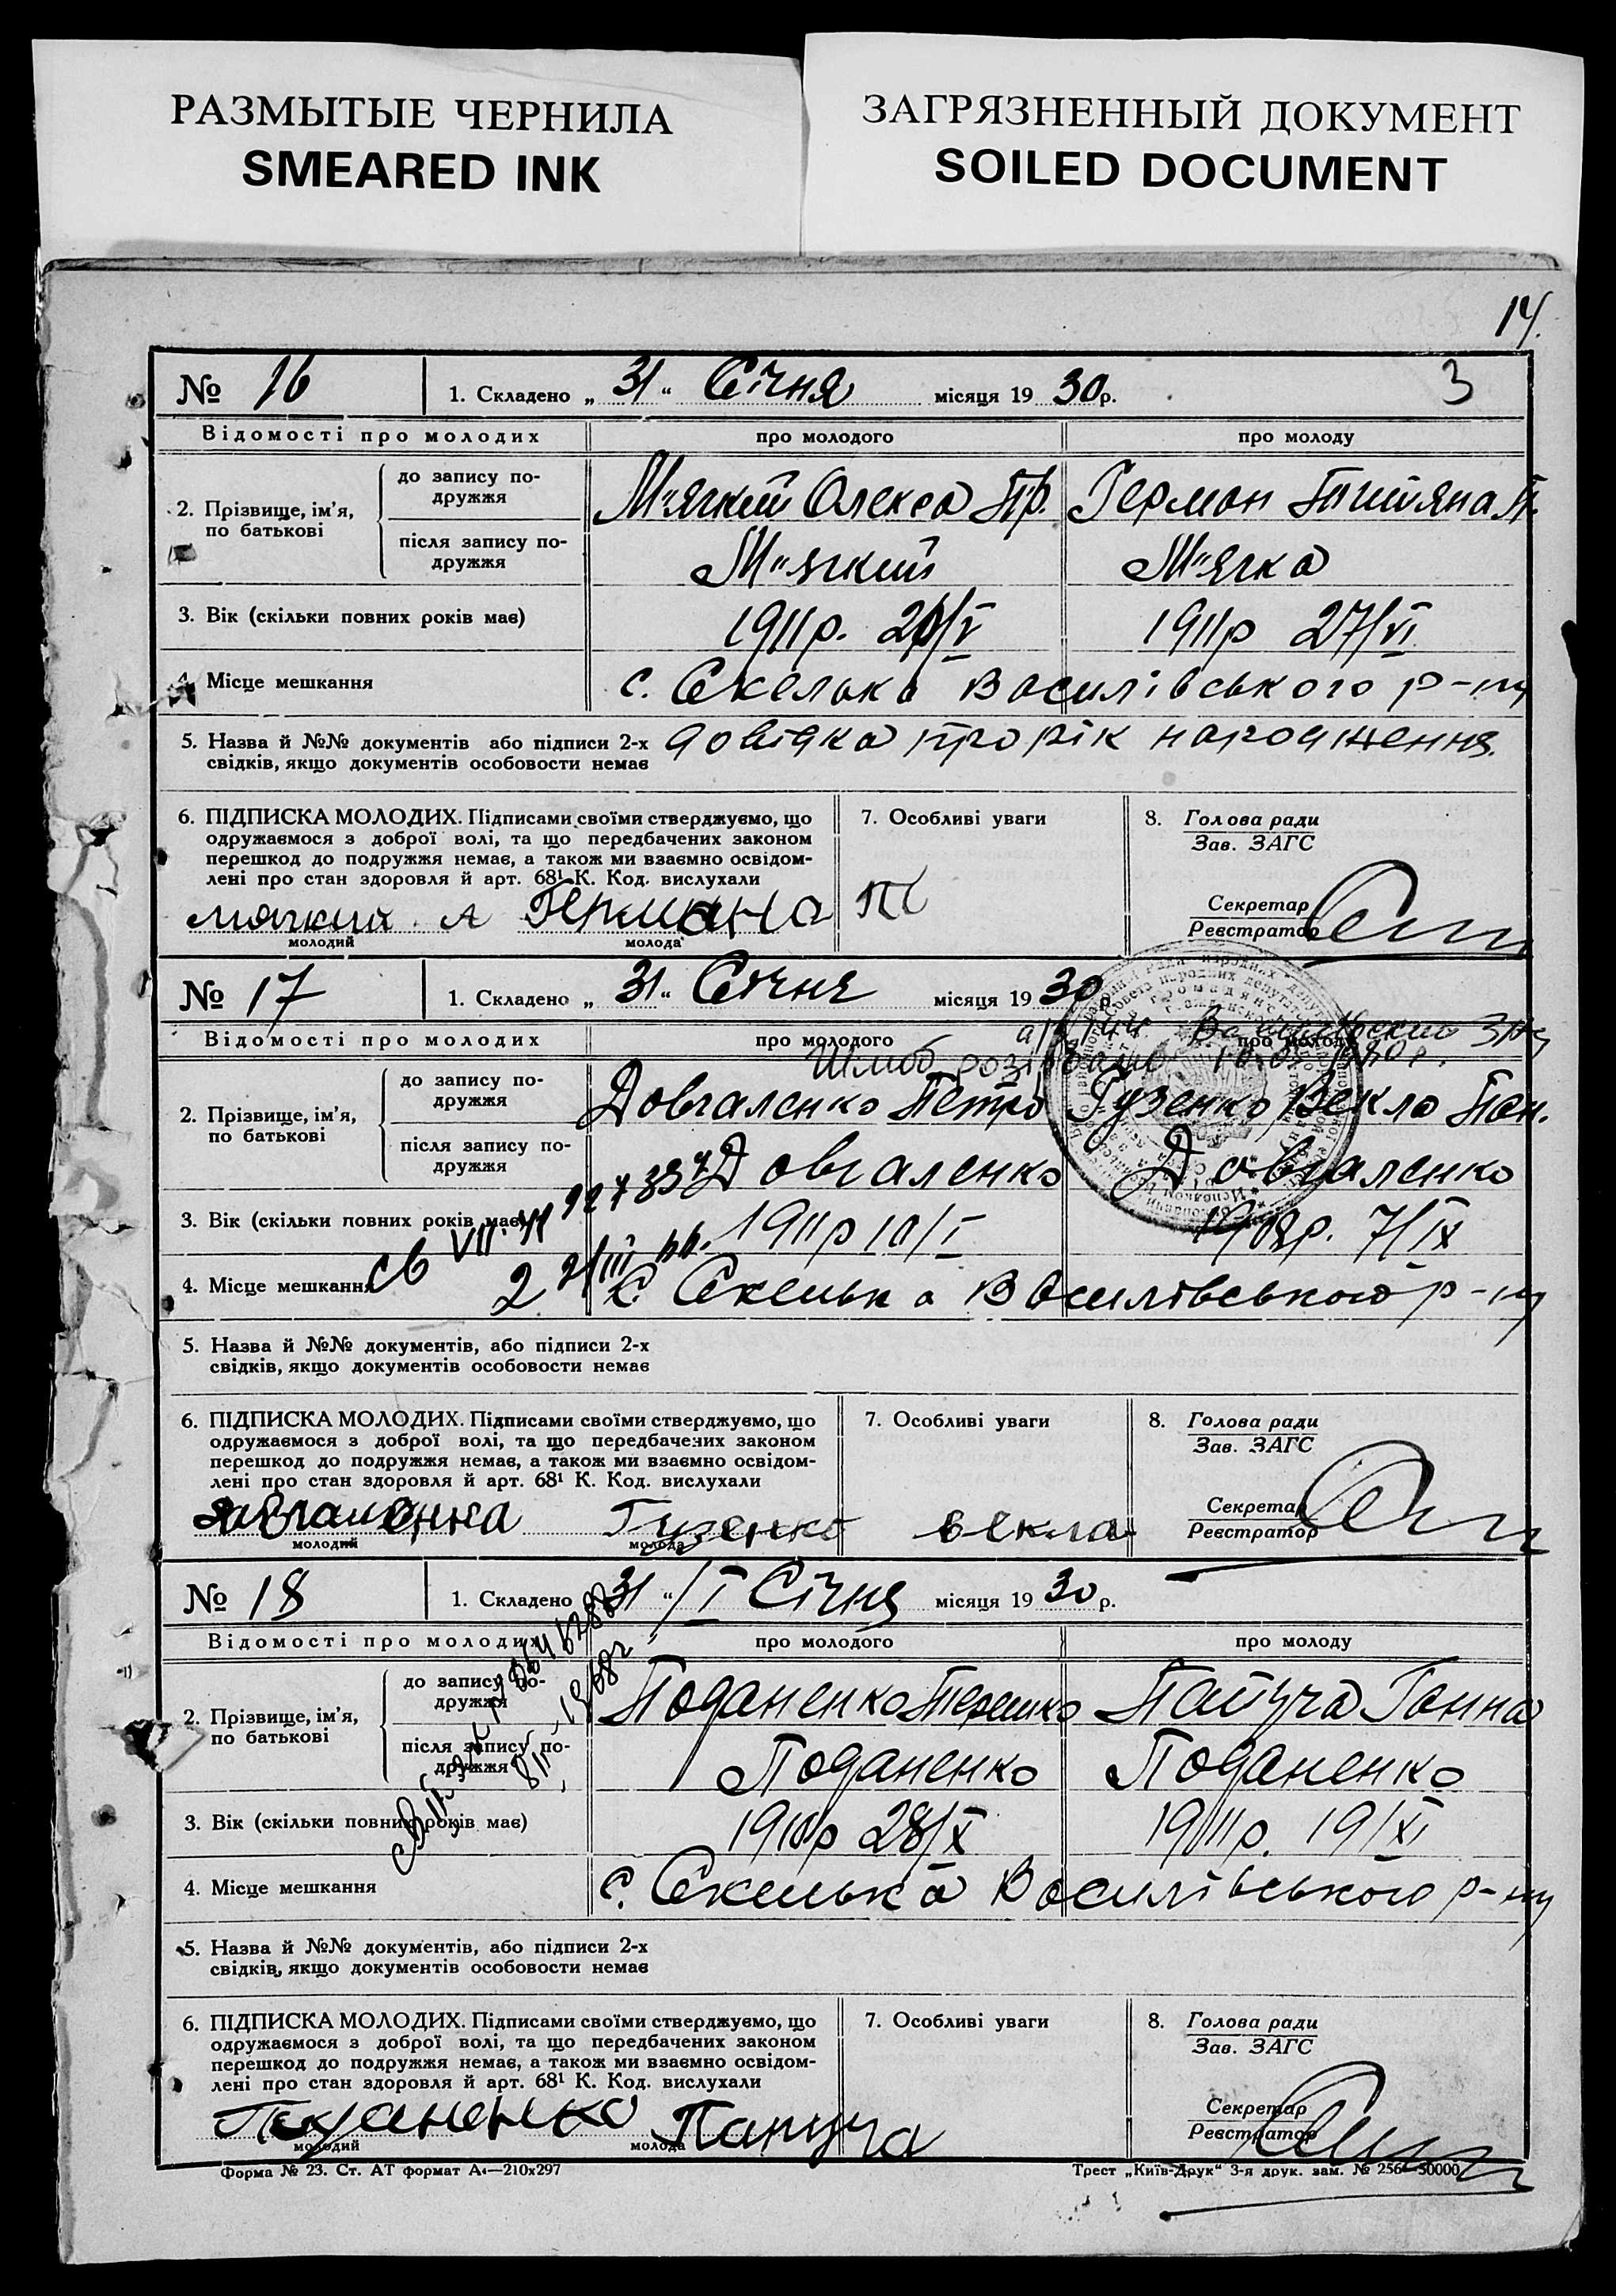 РАЗМЫТЫЕ ЧЕРНИЛА
SMEARED INK
ЗАГРЯЗНЕННЫЙ ДОКУМЕНТ
SOILED DOCUMENT
14.
№ 16
1. Складено „ 31 “ Січня місяця 19 30 р.
3
Відомості про молодих
про молодого
про молоду
2. Прізвище, ім'я,
по батькові
до запису по-
дружжя
М"ягкий Олекса Пр.
Герман Титяна П.
після запису по-
дружжя
М"ягкий
М"ягка
3. Вік (скільки повних років має)
1911р. 20/V
1911р 27/VI
4. Місце мешкання
с. Скелька Василівського р-ну
5. Назва й №№ документів або підписи 2-х
свідків, якщо документів особовости немає
довідка про рік народження.
6. ПІДПИСКА МОЛОДИХ. Підписами своїми стверджуємо, що
одружаємося з доброї волі, та що передбачених законом
перешкод до подружжя немає, а також ми взаємно освідом-
лені про стан здоровля й арт. 68¹ К. Код. вислухали
мягкий А Германа
молодий
молода
7. Особливі уваги
8. Голова ради
Зав. ЗАГС
Секретар
Реєстратор
№ 17
1. Складено „ 31 “ Січня місяця 19 30 р.
Відомості про молодих
про молодого
про молоду
Шлюб розірвано
2. Прізвище, ім'я,
по батькові
до запису по-
дружжя
Довгаленко Петро
Гузенко Векла Пан.
після запису по-
дружжя
Довгаленко
Довгаленко
3. Вік (скільки повних років має)
1911р 10/I
1908р. 7/IX
4. Місце мешкання
с. Скелька Василівського р-ну
5. Назва й №№ документів, або підписи 2-х
свідків, якщо документів особовости немає
6. ПІДПИСКА МОЛОДИХ. Підписами своїми стверджуємо, що
одружаємося з доброї волі, та що передбачених законом
перешкод до подружжя немає, а також ми взаємно освідом-
лені про стан здоровля й арт. 68¹ К. Код. вислухали
Гузенко векла
молодий
молода
7. Особливі уваги
8. Голова ради
Зав. ЗАГС
Секретар
Реєстратор
№ 18
1. Складено „ 31 “ /I Січня місяця 19 30 р.
Відомості про молодих
про молодого
про молоду
2. Прізвище, ім'я,
по батькові
до запису по-
дружжя
Поданенко Терешко
Папуча Ганна
після запису по-
дружжя
Поданенко
Поданенко
3. Вік (скільки повних років має)
1910р 28/X
1911р. 19/XI
4. Місце мешкання
с. Скелька Василівського р-ну
5. Назва й №№ документів, або підписи 2-х
свідків, якщо документів особовости немає
6. ПІДПИСКА МОЛОДИХ. Підписами своїми стверджуємо, що
одружаємося з доброї волі, та що передбачених законом
перешкод до подружжя немає, а також ми взаємно освідом-
лені про стан здоровля й арт. 68¹ К. Код. вислухали
Папуча
молодий
молода
7. Особливі уваги
8. Голова ради
Зав. ЗАГС
Секретар
Реєстратор
Форма № 23. Ст. АТ формат А₄—210x297
Трест „Київ-Друк“ 3-я друк. зам. № 256—50000